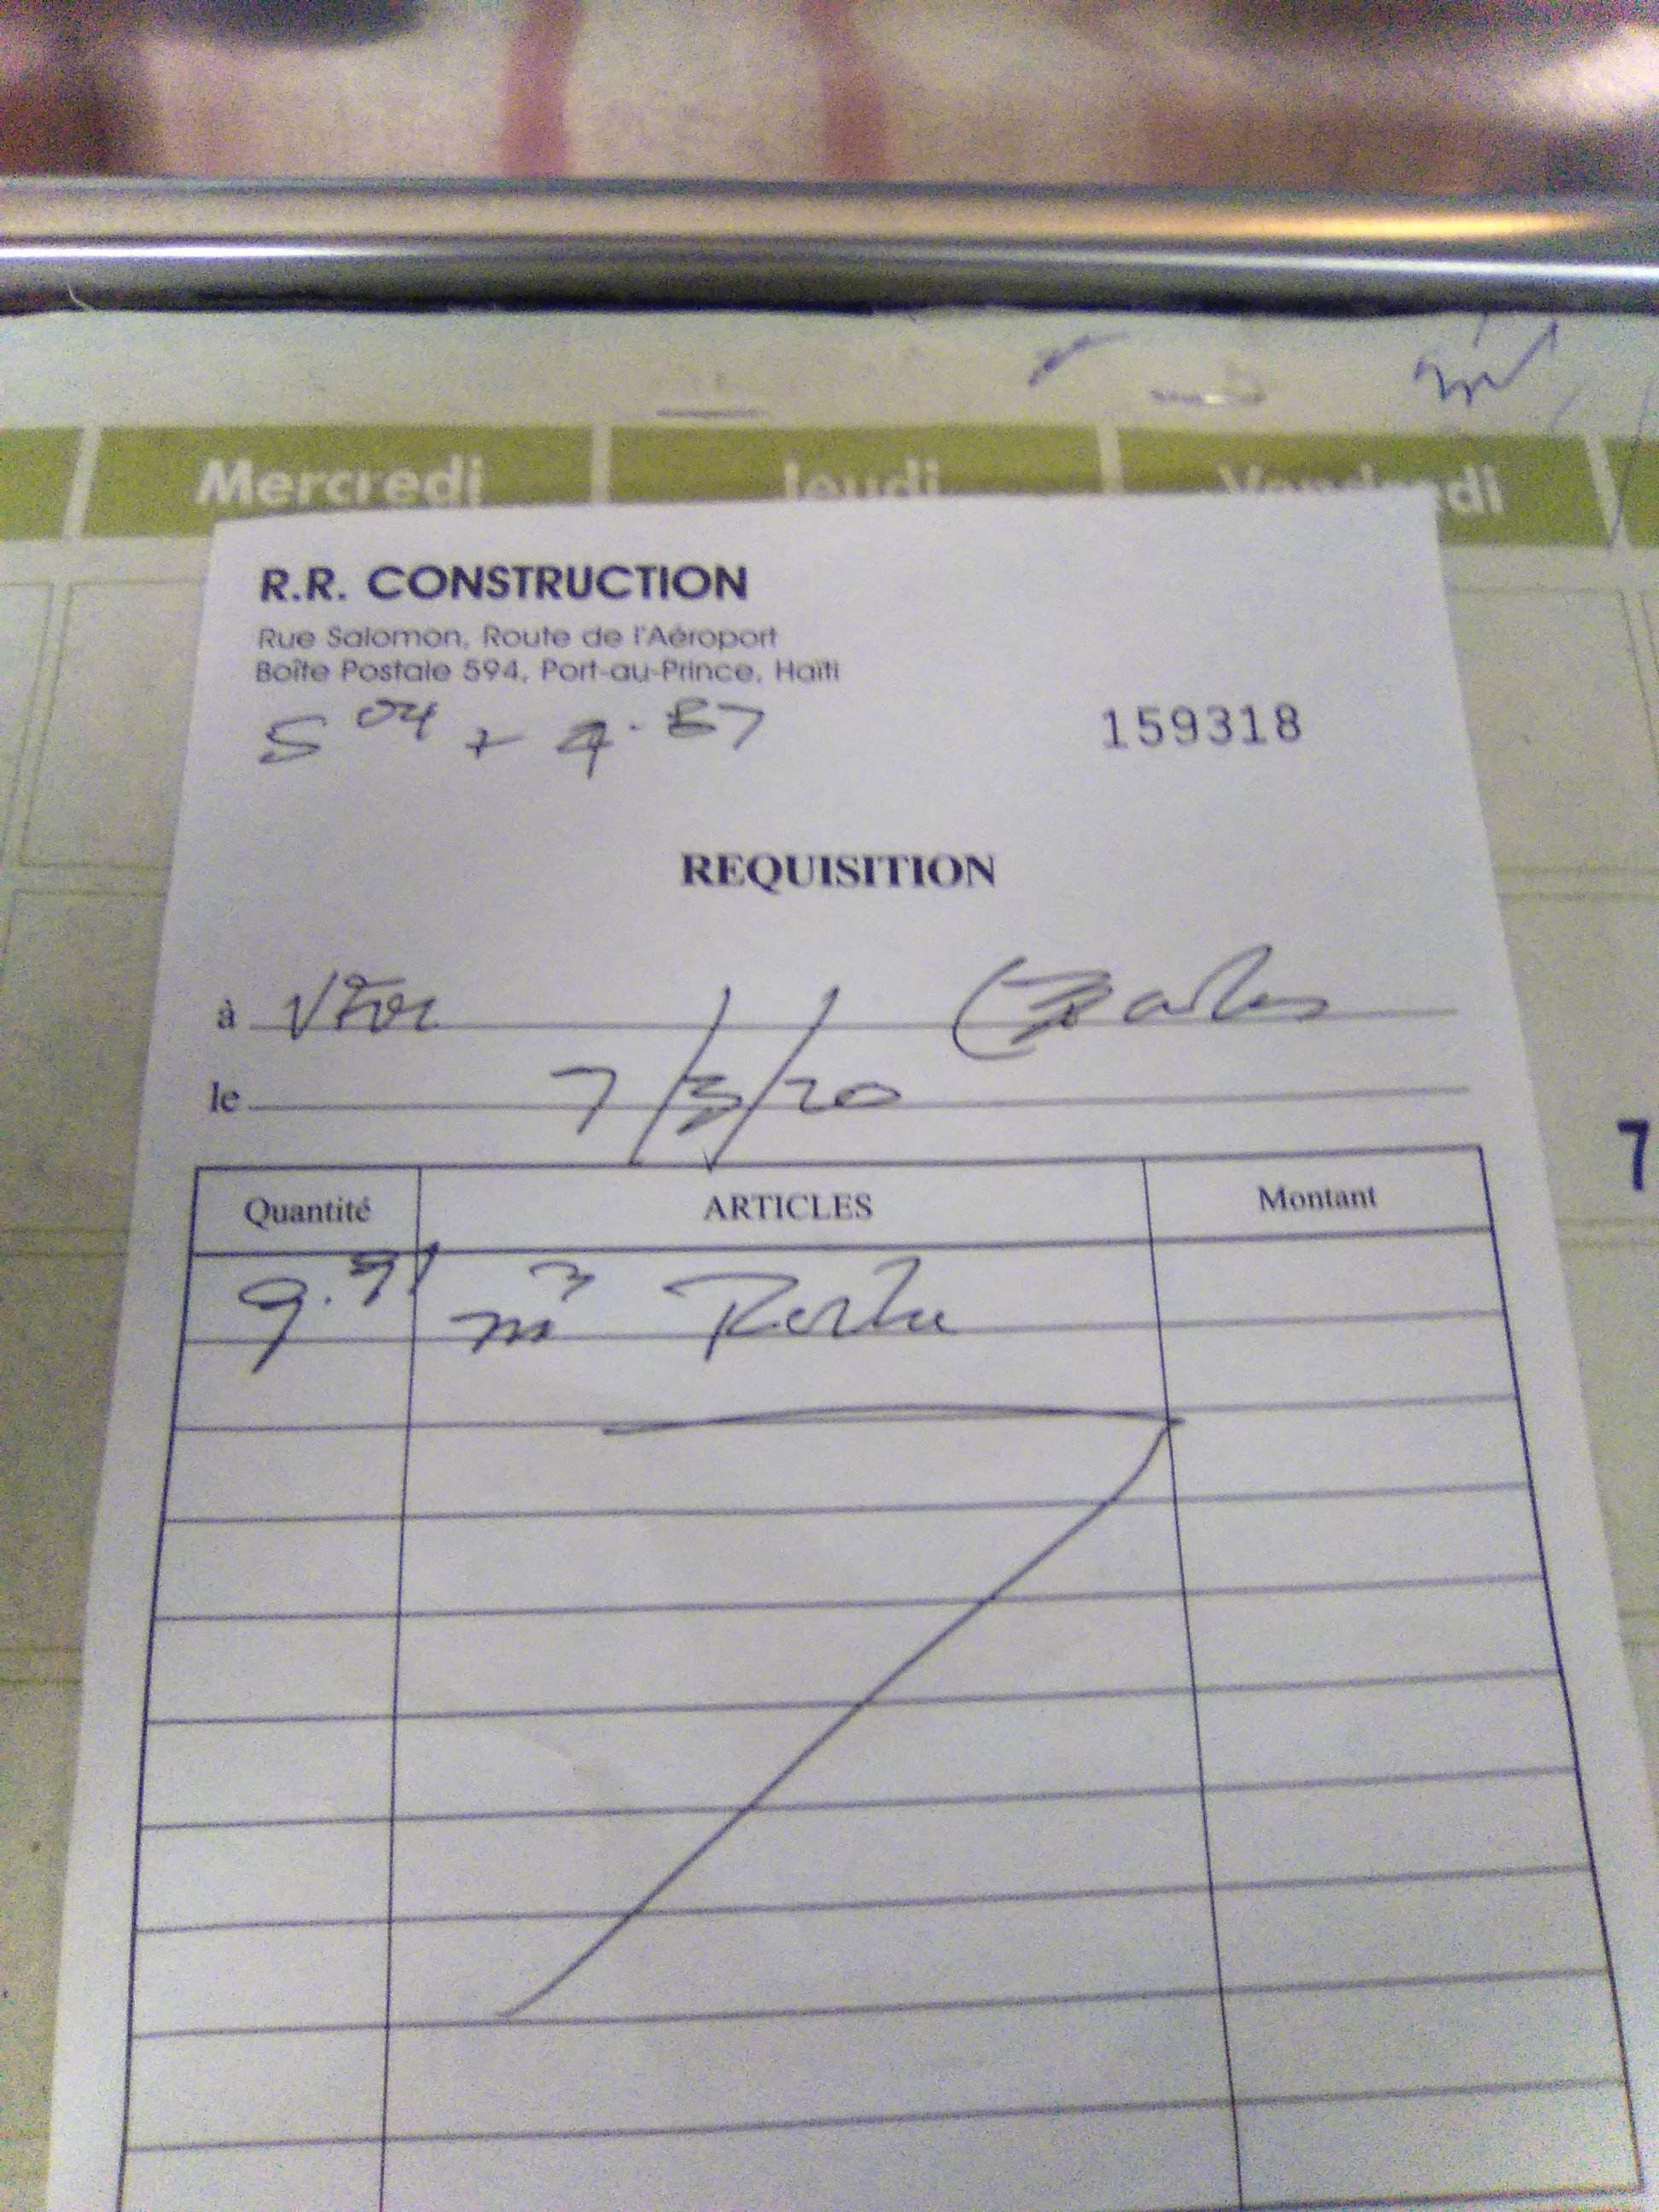 Mercredi Jeudi Vendredi
R.R. CONSTRUCTION
Rue Salomon, Route de l'Aéroport
Boîte Postale 594, Port-au-Prince, Haïti
5 04 + 4.87
159318
REQUISITION
à
le 7/3/20
7
Quantité ARTICLES Montant
9.91 m³